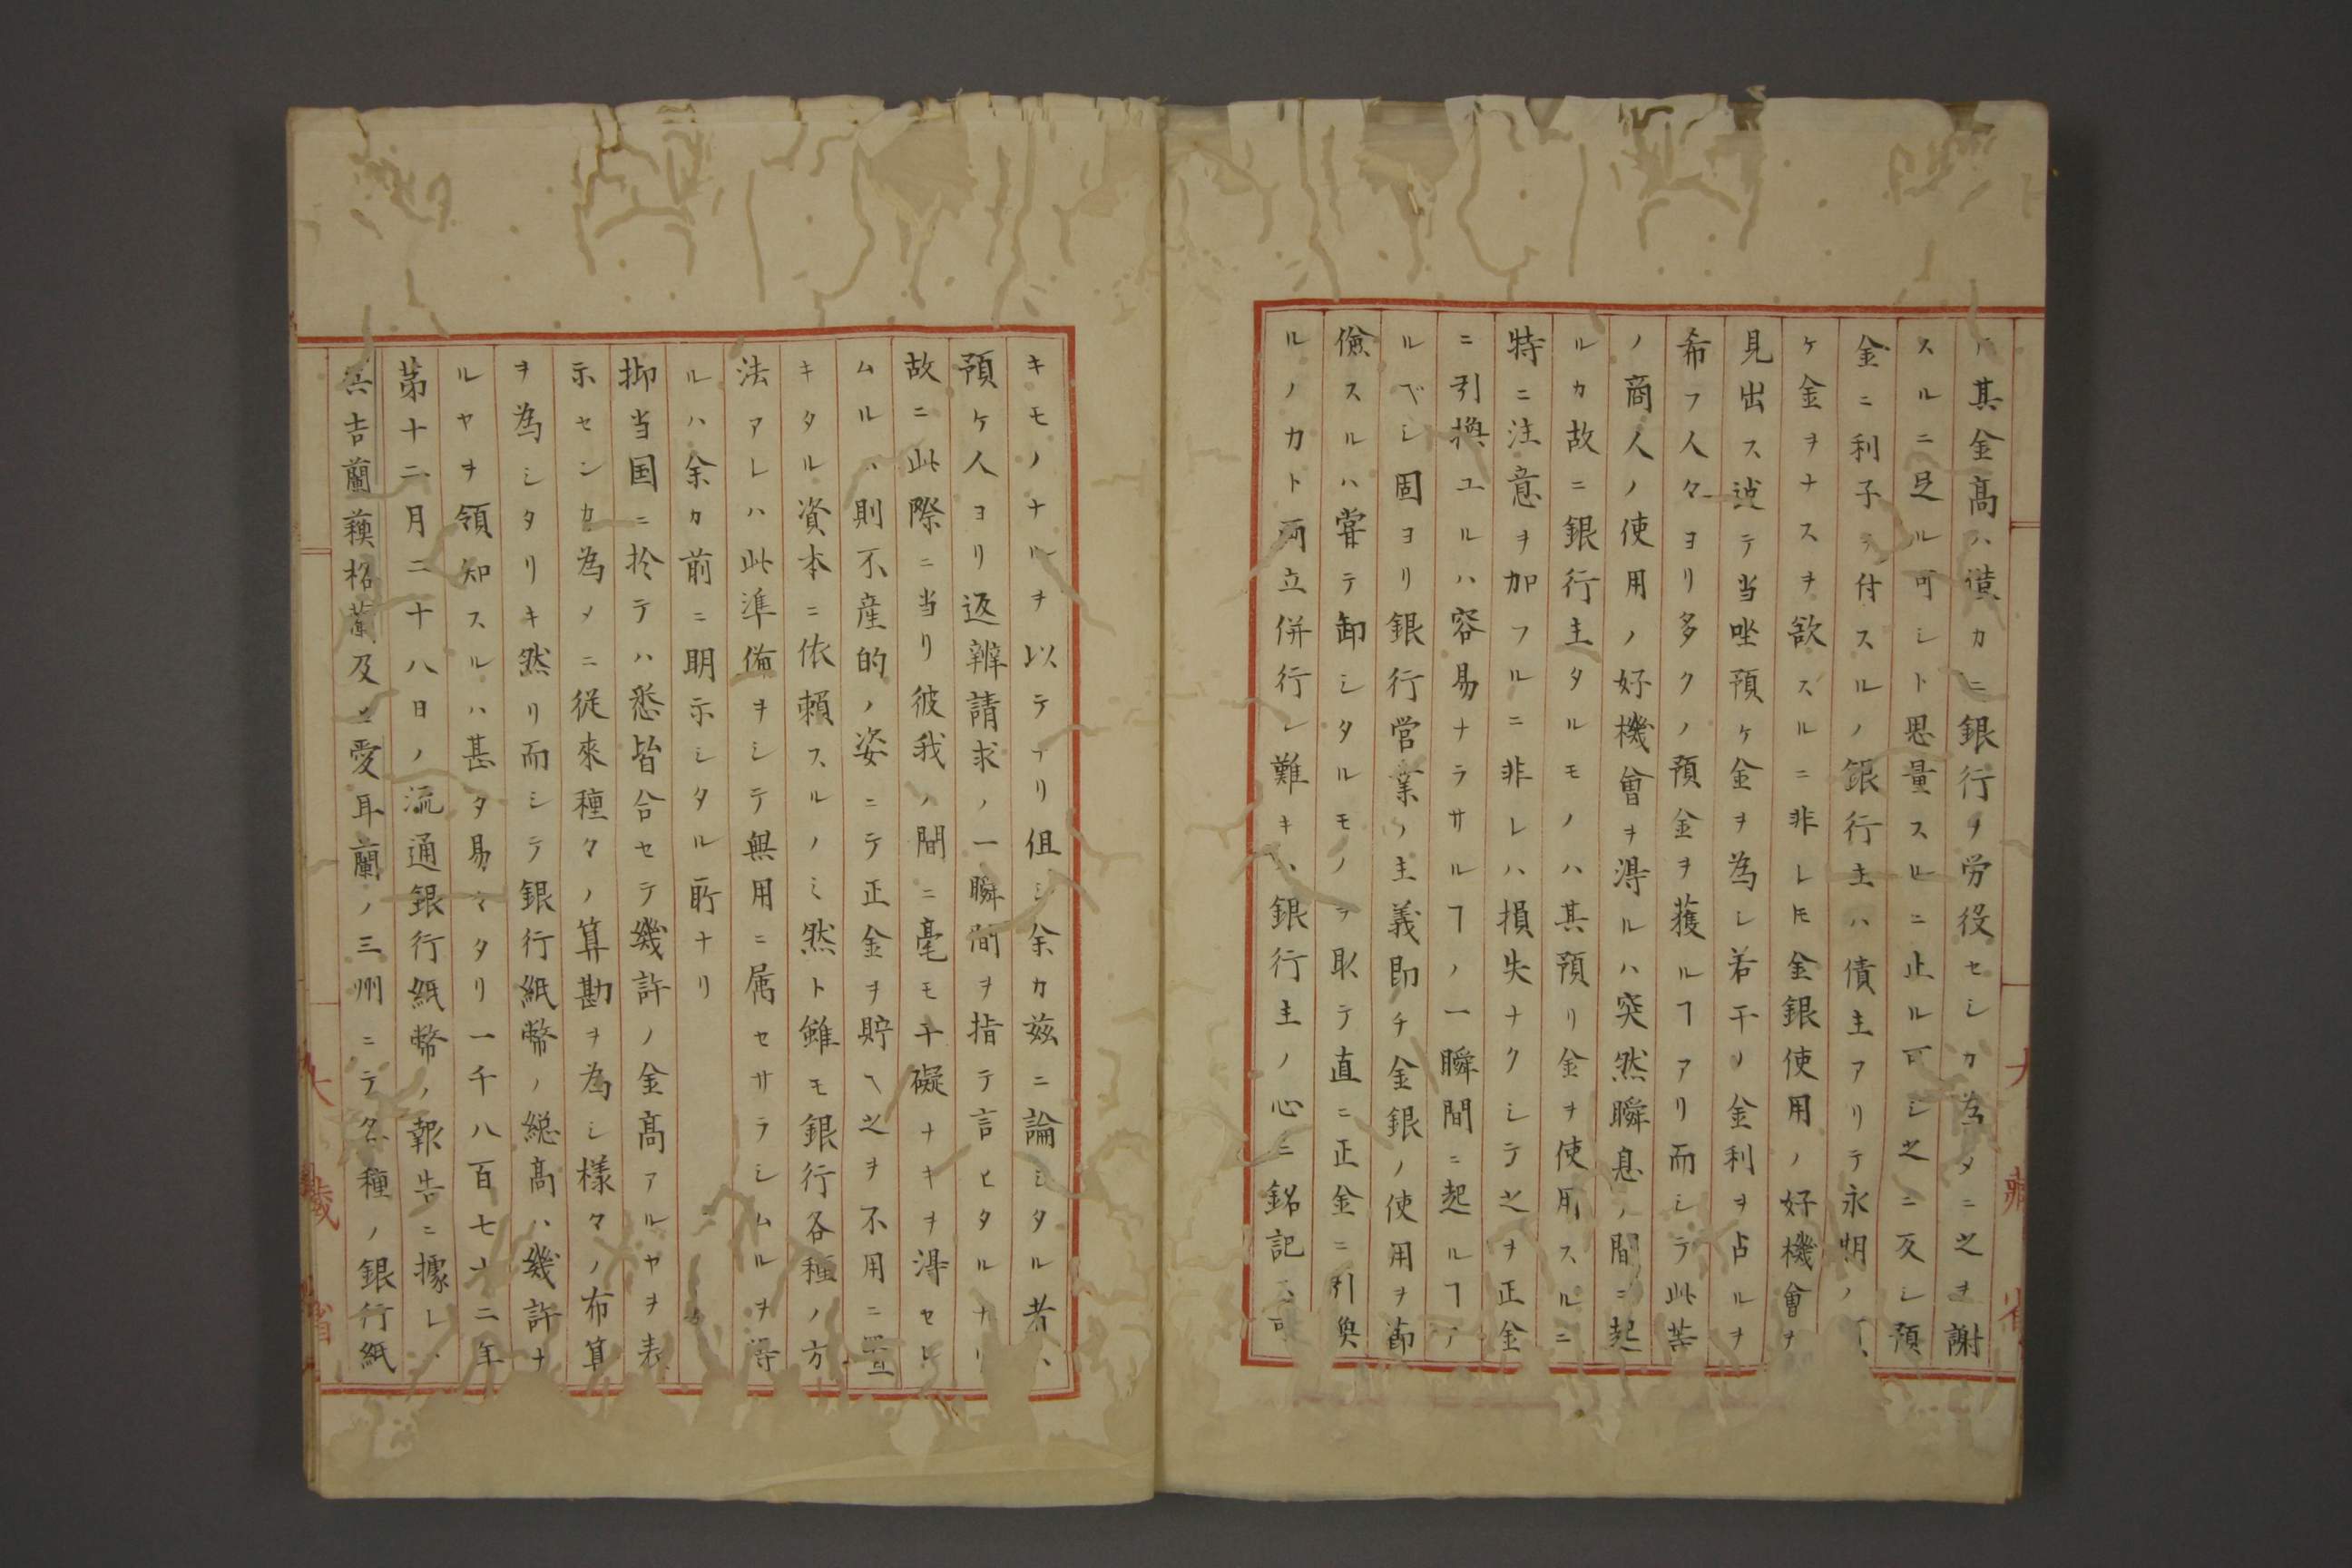 其金高ハ僅カニ銀行ヲ労役セシカ為タニ之ヲ謝
スルニ足ル可シト思量スルニ止ル可シ之ニ反シ預
金ニ利子ヲ付スルノ銀行主ハ債主アリテ永期ノ
ケ金ヲナスヲ欲スルニ非レ𪜈金銀使用ノ好機會ヲ
見出ス迠テ当坐預ケ金ヲ為シ若干ノ金利ヲ占ルヲ
希フ人々ヨリ多クノ預金ヲ獲ルヿアリ而シテ此等
ノ商人ノ使用ノ好機會ヲ得ルハ突然瞬息ノ間ニ起
ルカ故ニ銀行主タルモノハ其預リ金ヲ使用スルニ
特ニ注意ヲ加フルニ非レハ損失ナクシテ之ヲ正金
ニ引換ユルハ容易ナラサルヿノ一瞬間ニ起ルヿア
ルベシ固ヨリ銀行営業ノ主義即チ金銀ノ使用ヲ節
儉スルハ嘗テ卸シタルモノヲ取テ直ニ正金ニ引奐
ルノカト両立併行シ難キハ銀行主ノ心ニ銘記ス可
キモノナルヲ以テナリ但シ余カ茲ニ論シタル者ハ
預ケ人ヨリ返辨請求ノ一瞬間ヲ指テ言ヒタルナリ
故ニ此際ニ当リ彼我ノ間ニ毫モ干礙ナキヲ得セシ
ムルハ則不産的ノ姿ニテ正金ヲ貯ヘ之ヲ不用ニ置
キタル資本ニ依頼スルノミ然ト雖モ銀行各種ノ方
法アレハ此準備ヲシテ無用ニ属セサラシムルヲ得
ルハ余カ前ニ明示シタル所ナリ
抑当国ニ於テハ悉皆合セテ幾許ノ金高アルヤヲ表
示センカ為メニ従來種々ノ算勘ヲ為シ様々ノ布算
ヲ為シタリキ然リ而シテ銀行紙幣ノ総高ハ幾許ナ
ルヤヲ領知スルハ甚タ易シタリ一千八百七十二年
第十二月二十八日ノ流通銀行紙幣ノ報告ニ據レハ
英吉蘭蘓格蘭及ヒ愛耳蘭ノ三州ニテ各種ノ銀行紙
大藏省
大藏省